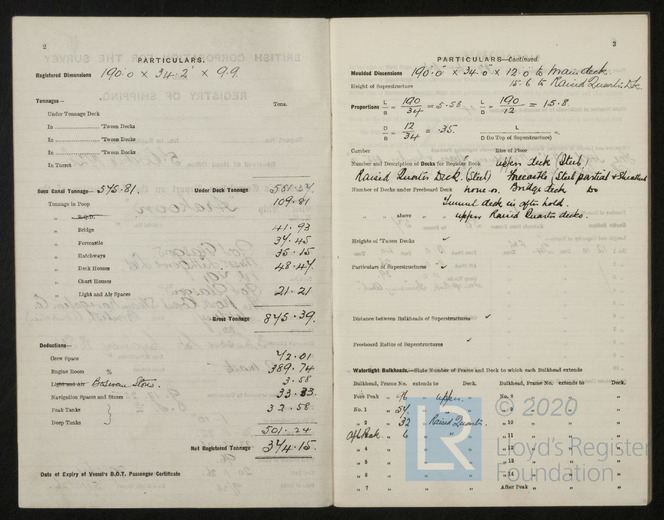 2
PARTICULARS.
Registered Dimensions 190.0 x 34.2' x 9.9
Tonnages—
Tons.
Under Tonnage Deck
In 'Tween Decks
In 'Tween Decks
In 'Tween Decks
In Turret
Suez Canal Tonnage— 575.81. Under Deck Tonnage
Tonnage in Poop 109.81
" R.Q.D.
" Bridge 41.93
" Forecastle 34.45
" Hatchways 35.15
" Deck Houses 48.47
" Chart Houses
" Light and Air Spaces 21.21
Gross Tonnage 845.39.
Deductions—
Crew Space 42.01
Engine Room 389.74
Light and Air Boatswain Stores 3.58
Navigation Spaces and Stores 33.33
Peak Tanks 32.58
Deep Tanks
501.24
Net Registered Tonnage 344.15.
Date of Expiry of Vessel's B.O.T. Passenger Certificate
3
PARTICULARS—Continued
Moulded Dimensions 190.0 x 34.0 x 12.0 to Main deck.
Height of Superstructures 15.6 to Raised Quarter Dk.
Proportions L/B = 190/34 = 5.58 L/D = 190/12 = 15.8.
D/B = 12/34 = .35. L/D (to Top of Superstructure) =
Camber Rise of Floor
Number and Description of Decks for Register Book upper deck (Steel)
Raised Quarter Deck. (Steel) Forecastle (Steel partial & Sheathed
Number of Decks under Freeboard Deck none. Bridge deck Do
Tunnel deck in after hold.
" above " upper Raised Quarter decks.
Heights of 'Tween Decks ✓
Particulars of Superstructures ✓
Distance between Bulkheads of Superstructures ✓
Freeboard Ratios of Superstructures ✓
Watertight Bulkheads.—State Number of Frame and Deck to which each Bulkhead extends
Bulkhead, Frame No. extends to Deck. Bulkhead, Frame No. extends to Deck.
Fore Peak 96 upper. No. 8
No. 1 54 " 9
" 2 32 Raised Quarter. " 10
Aft Peak 6 " 11
" 4 " 12
" 5 " 13
" 6 " 14
" 7 After Peak
© 2020
LR
Lloyd's Register
Foundation